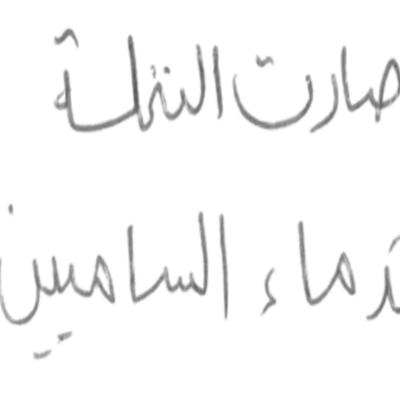 صارت النقلة
دماء الساميين